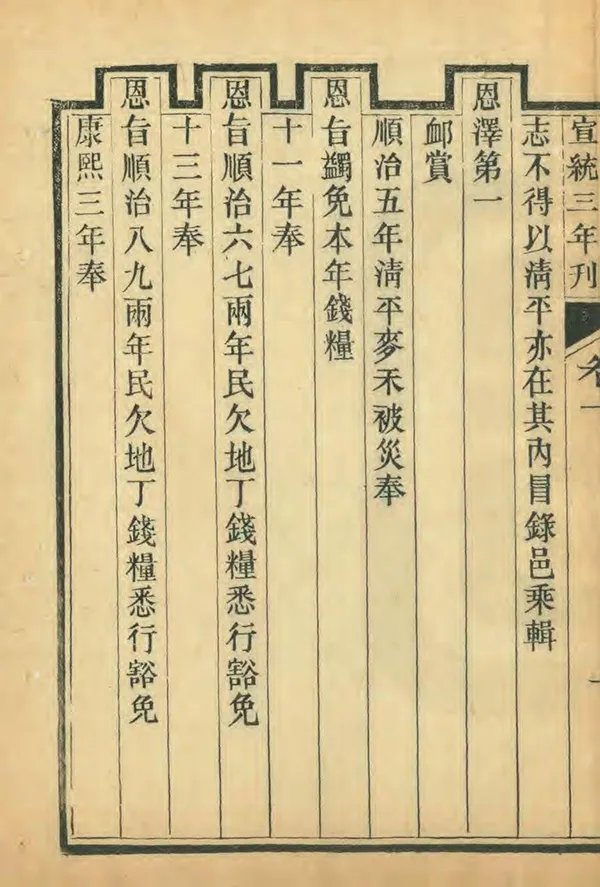 宣統三年刊 卷一
志不得以淸平亦在其內目錄邑乘輯
恩澤第一
卹賞
順治五年淸平麥禾被災奉
恩旨蠲免本年錢糧
十一年奉
恩旨順治六七兩年民欠地丁錢糧悉行豁免
十三年奉
恩旨順治八九兩年民欠地丁錢糧悉行豁免
康熙三年奉